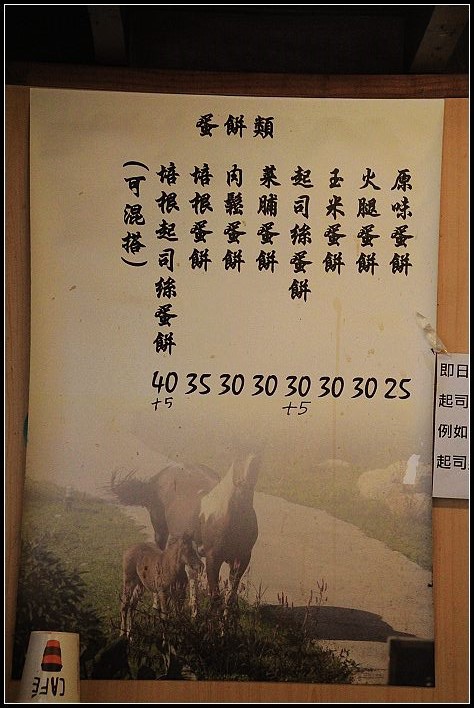 蛋餅類
原味蛋餅
火腿蛋餅
玉米蛋餅
起司絲蛋餅
菜脯蛋餅
肉鬆蛋餅
培根蛋餅
培根起司絲蛋餅
(可混搭)
40 35 30 30 30 30 30 25
+5 +5
即日
起司
例如
起司
CAFÉ